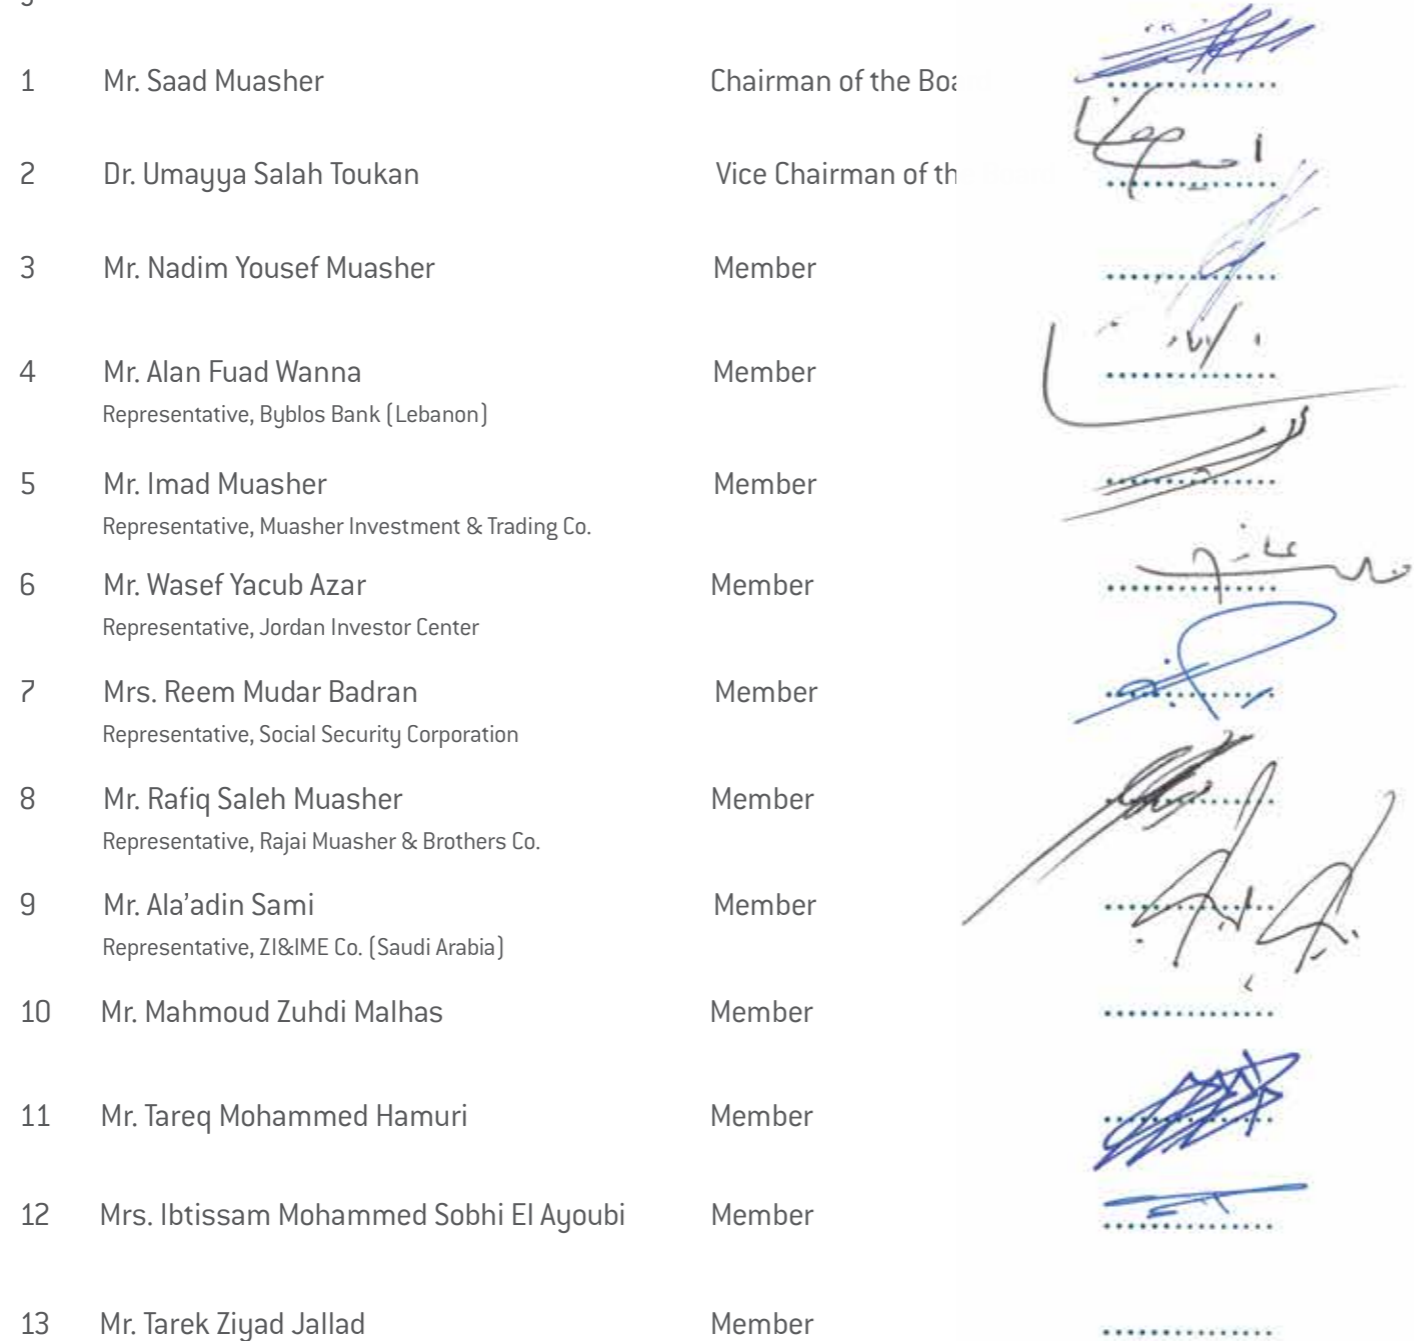 1 Mr. Saad Muasher Chairman of the Boa
2 Dr. Umayya Salah Toukan Vice Chairman of th
3 Mr. Nadim Yousef Muasher Member
4 Mr. Alan Fuad Wanna Member
Representative, Byblos Bank (Lebanon)
5 Mr. Imad Muasher Member
Representative, Muasher Investment & Trading Co.
6 Mr. Wasef Yacub Azar Member
Representative, Jordan Investor Center
7 Mrs. Reem Mudar Badran Member
Representative, Social Security Corporation
8 Mr. Rafiq Saleh Muasher Member
Representative, Rajai Muasher & Brothers Co.
9 Mr. Ala’adin Sami Member
Representative, ZI&IME Co. (Saudi Arabia)
10 Mr. Mahmoud Zuhdi Malhas Member
11 Mr. Tareq Mohammed Hamuri Member
12 Mrs. Ibtissam Mohammed Sobhi El Ayoubi Member
13 Mr. Tarek Ziyad Jallad Member